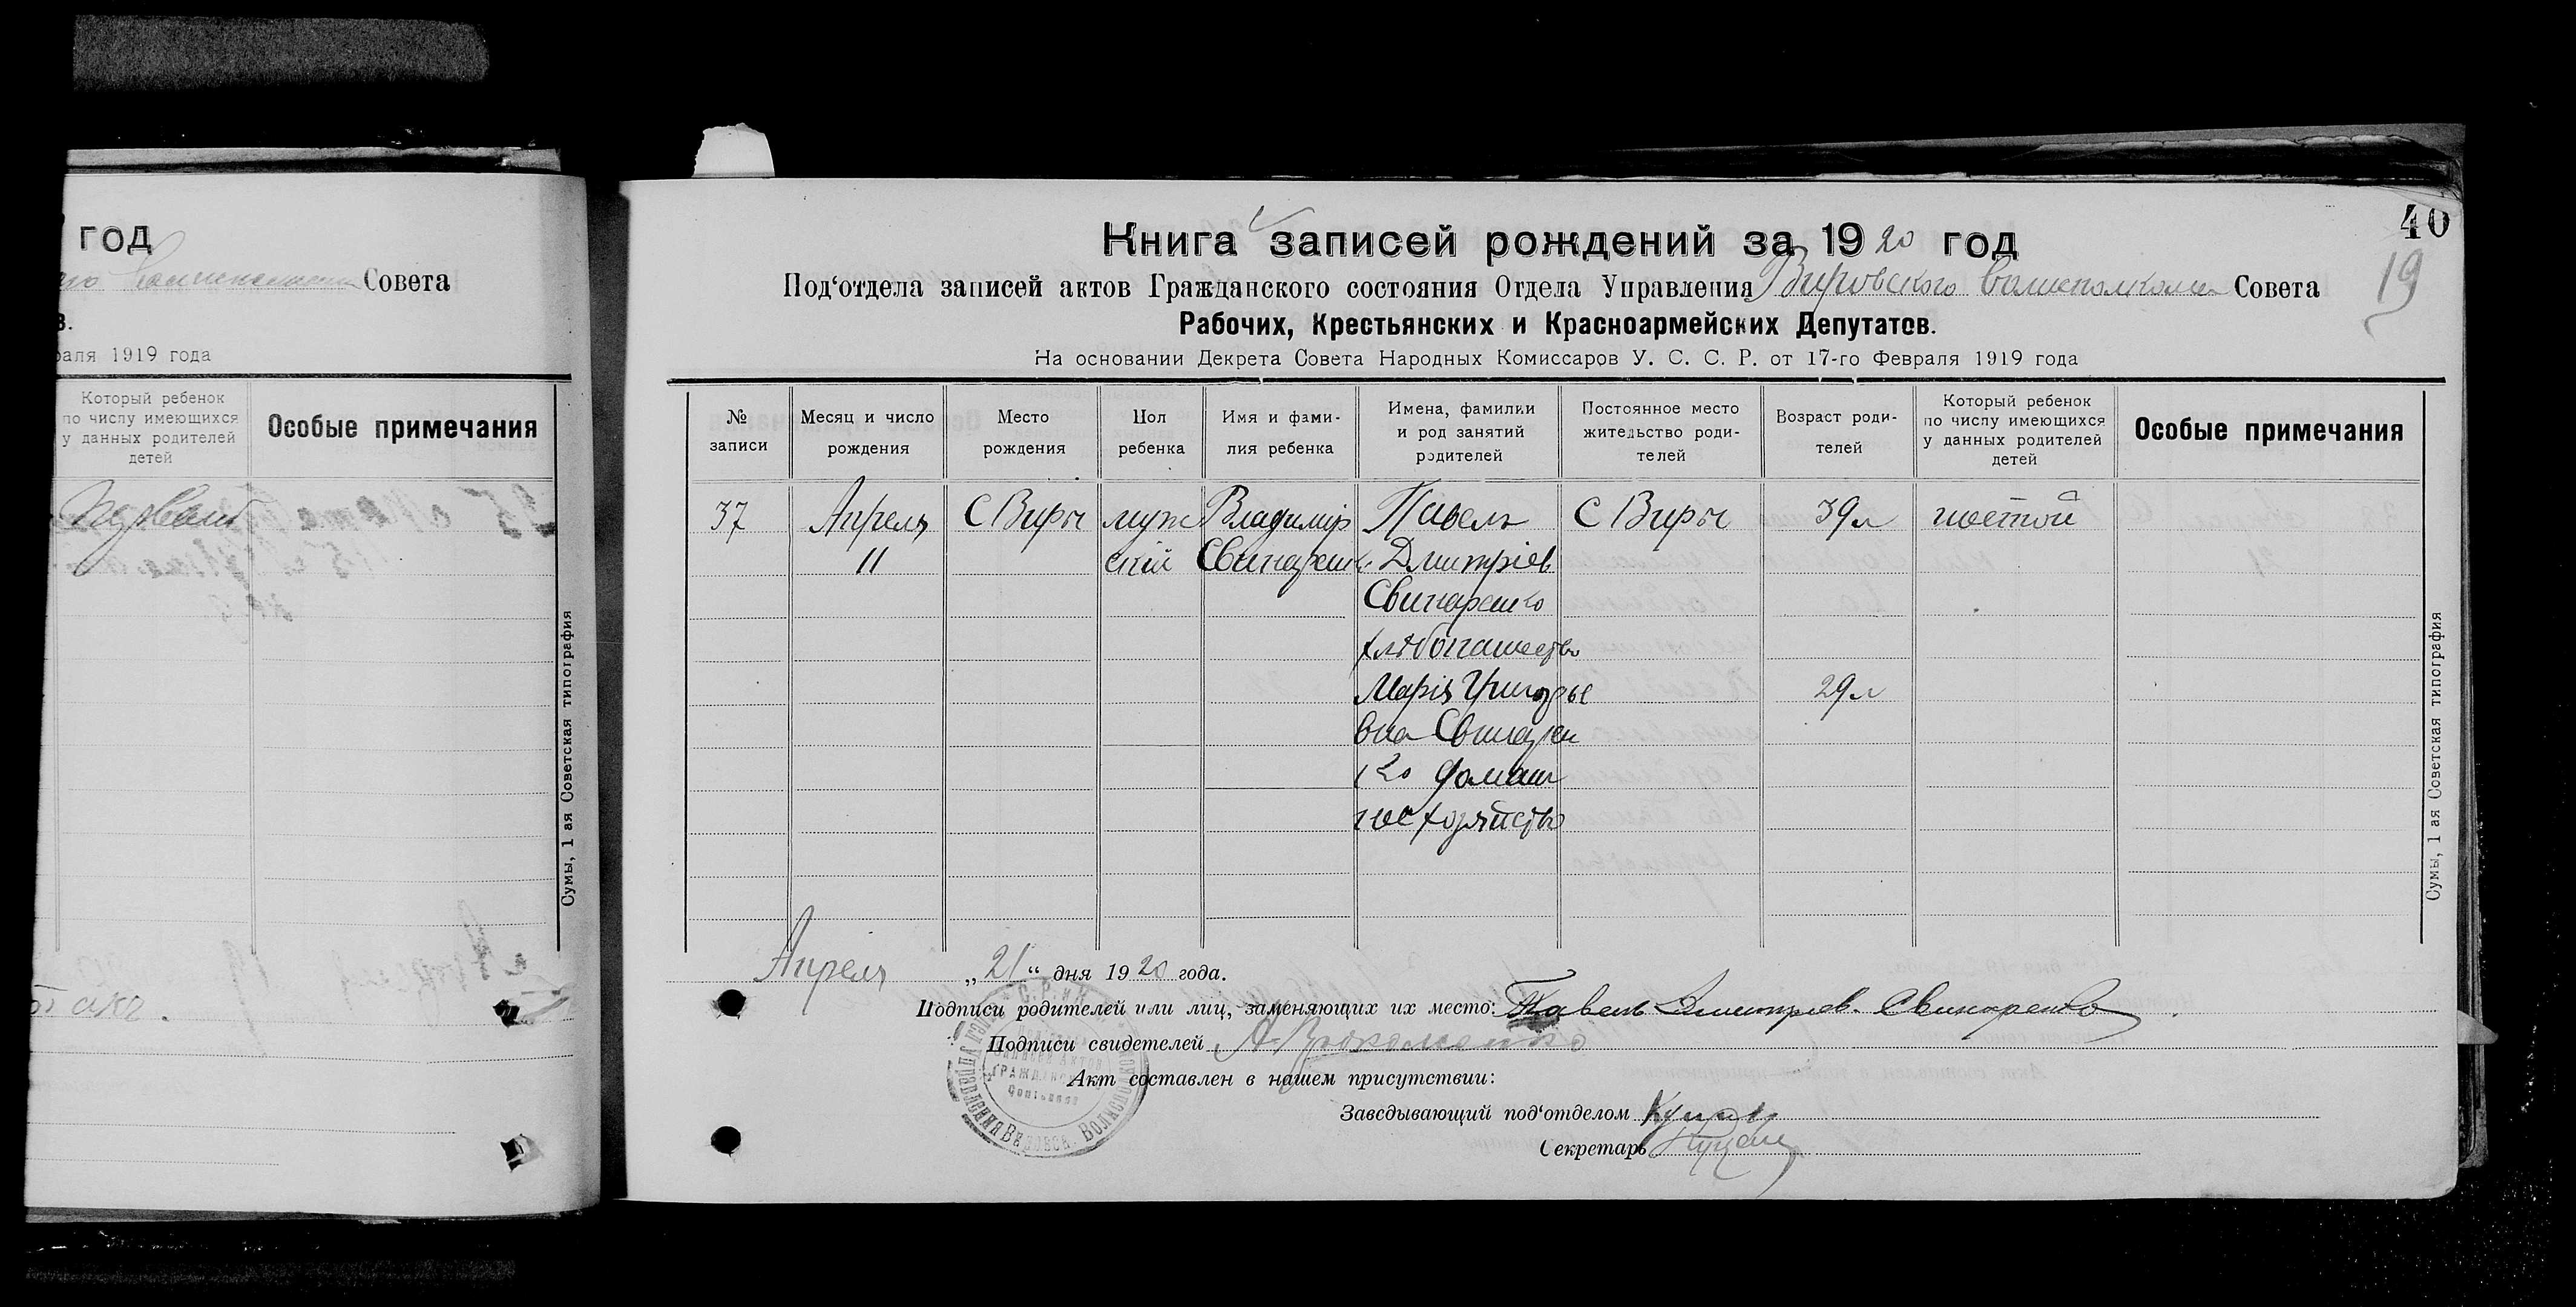 год
Совета
в.
раля 1919 года
Который ребенок
по числу имеющихся
у данных родителей
детей
Особые примечания
Сумы, 1 ая Советская типография
40
19
Книга записей рождений за 1920 год
Под‘отдела записей актов Гражданского состояния Отдела Управления Вировского Волисполкома Совета
Рабочих, Крестьянских и Красноармейских Депутатов.
На основании Декрета Совета Народных Комиссаров У. С. С. Р. от 17-го Февраля 1919 года
№
записи
Месяц и число
рождения
Место
рождения
Пол
ребенка
Имя и фами-
лия ребенка
Имена, фамилии
и род занятий
родителей
Постоянное место
жительство роди-
телей
Возраст роди-
телей
Который ребенок
по числу имеющихся
у данных родителей
детей
Особые примечания
37
Апреля
11
С Виры
муж
скій
Владимір
Свинаренк
Павелъ
Дмитріев
Свинаренко
хлѣбопашество
Марія Григорье
вна Свинарен
ко домаш
нее хозяйство
С Виры
39 л
29 л
шестой
Апреля „21“ дня 1920 года.
Подписи родителей или лиц, заменяющих их место: Павелъ Дмитриев. Свинаренко
Подписи свидетелей
Акт составлен в нашем присутствии:
Заведывающий под‘отделом
Секретарь
Сумы, 1 ая Советская типография